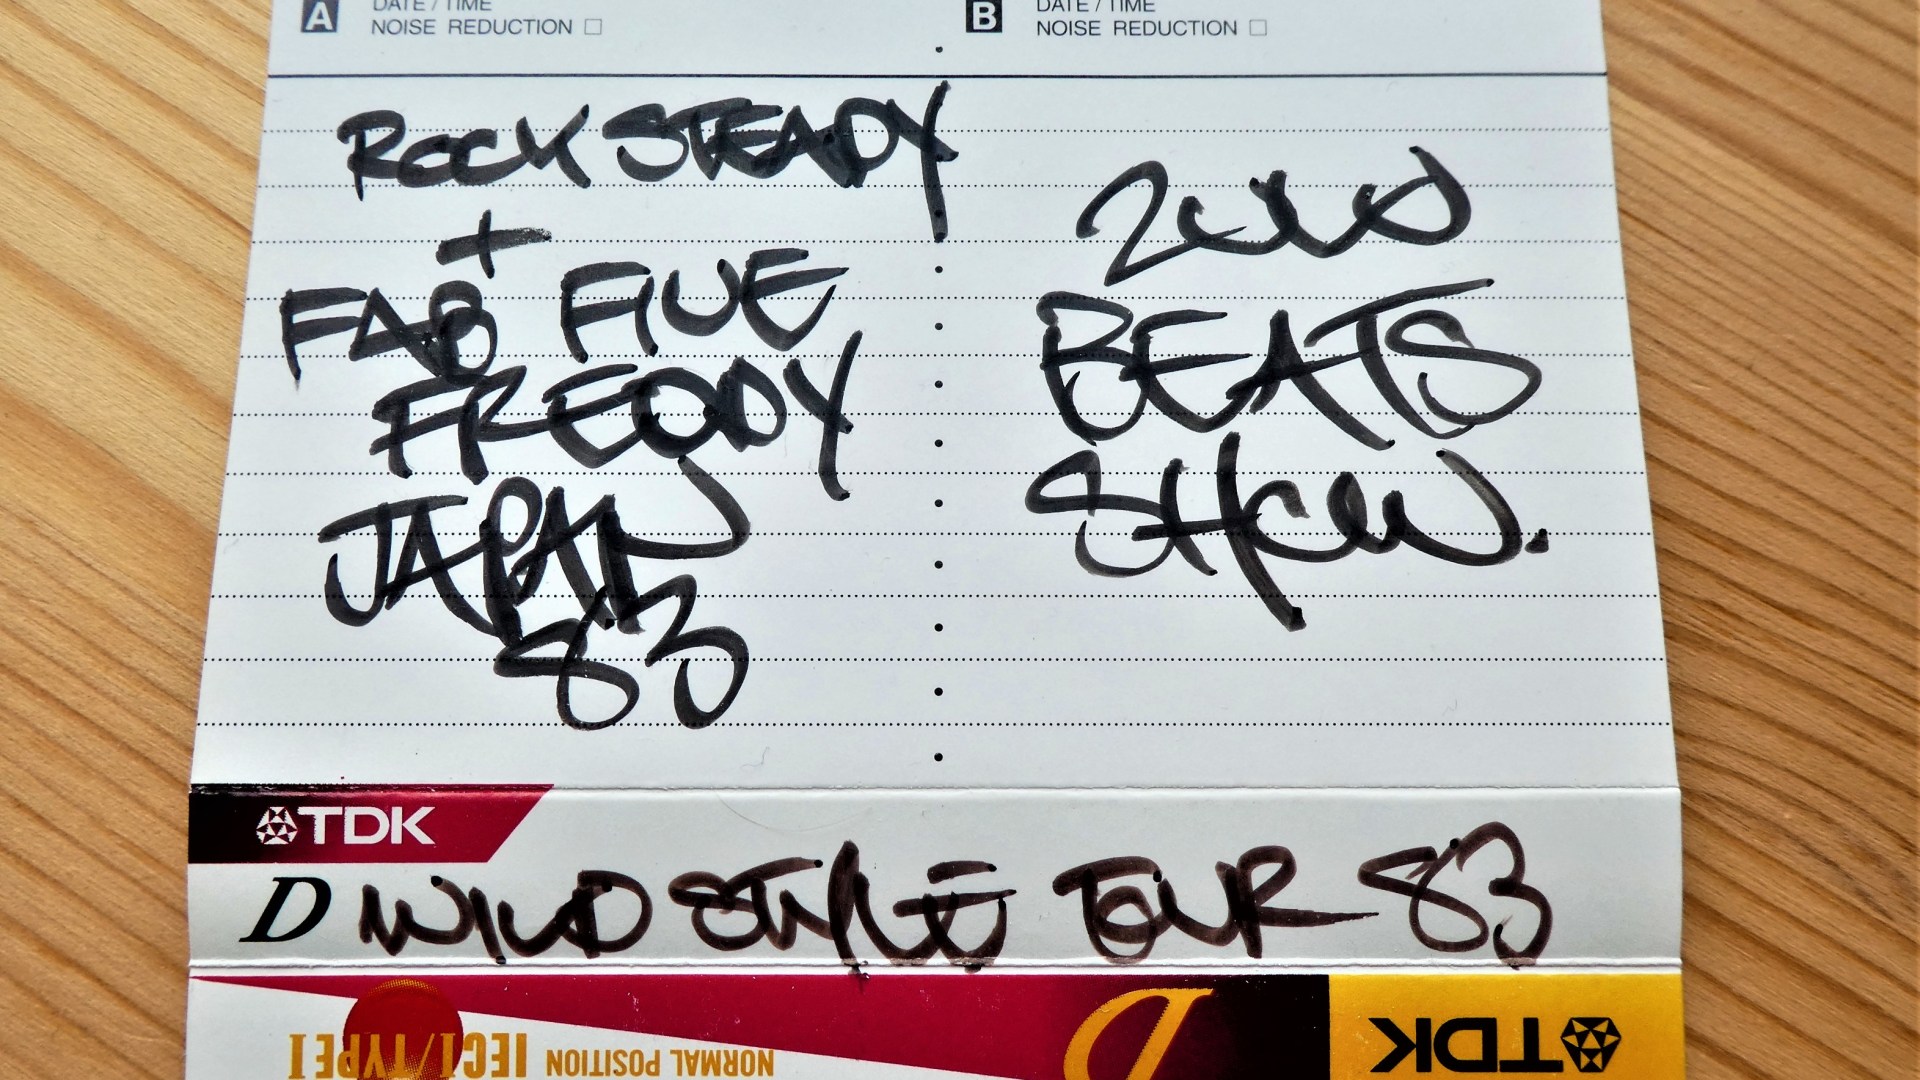 A DATE / TIME
NOISE REDUCTION
B DATE / TIME
NOISE REDUCTION
ROCK STEADY
+
FAB FIVE
FREDDY
JAPAN
83
ZULU
BEATS
SHOW.
TDK
D WILD STYLE TOUR 83
IECI/TYPE I NORMAL POSITION
D
TDK